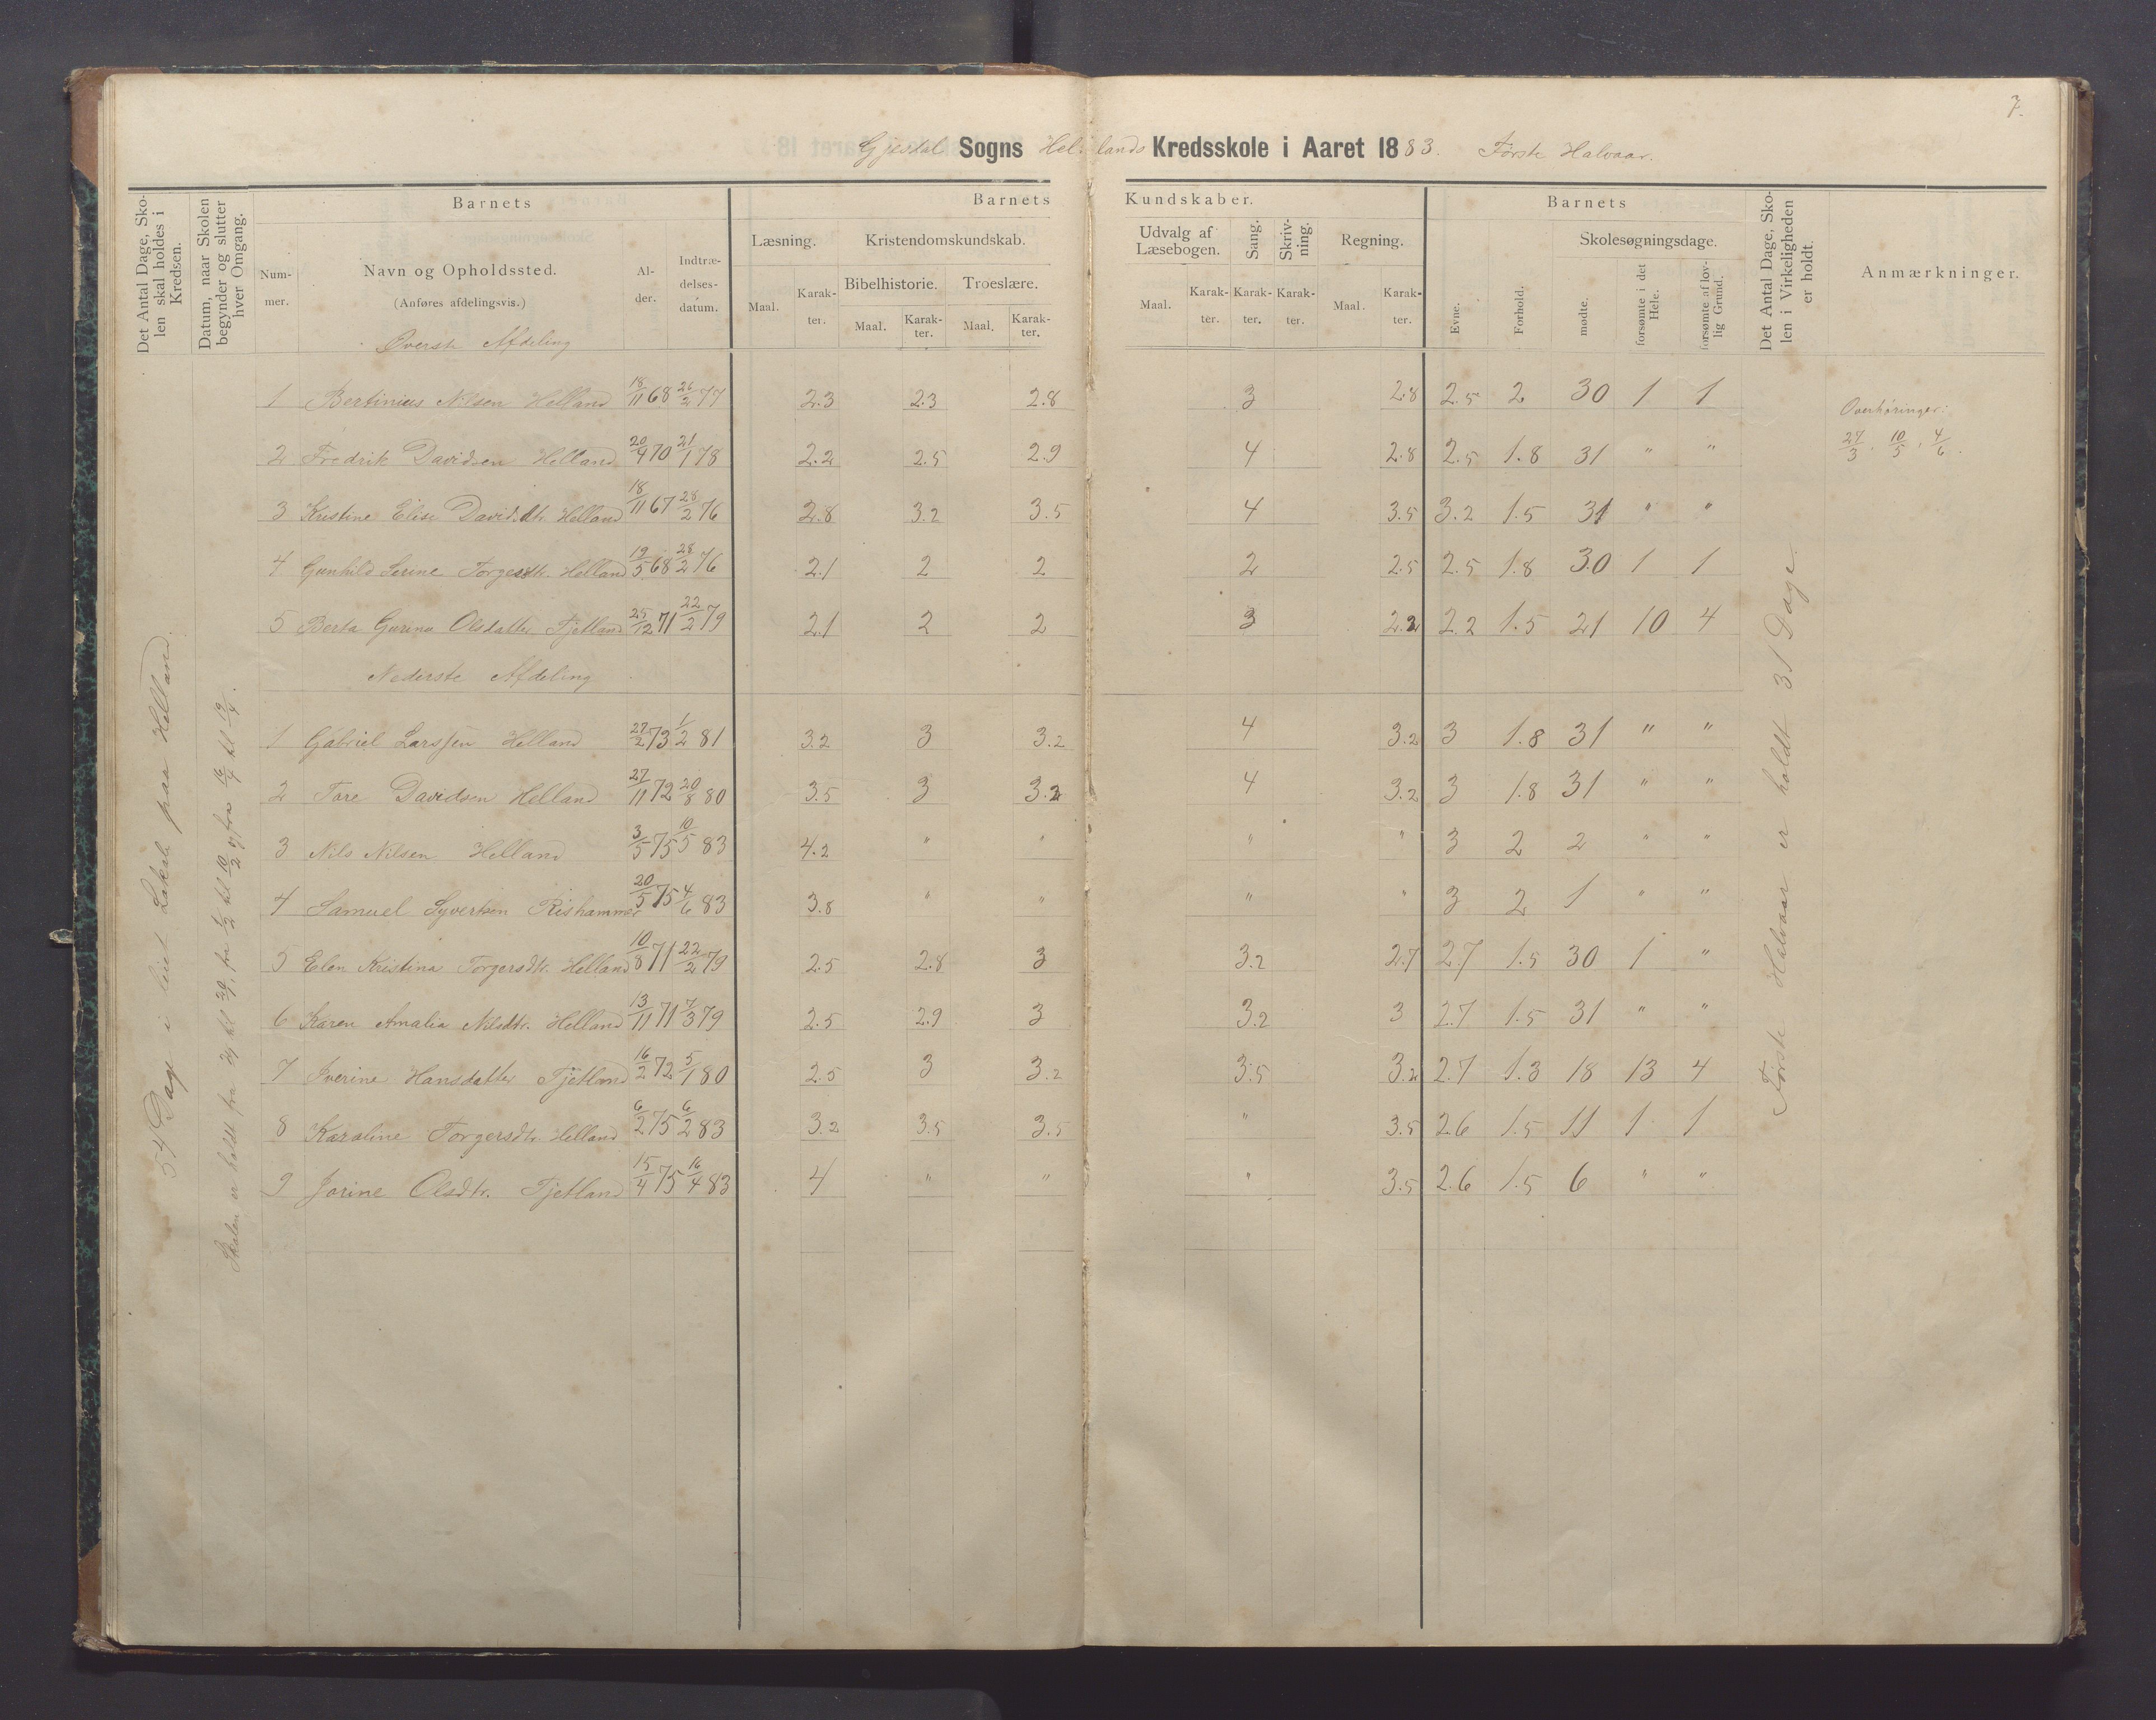 7.
Gjesdal Sogns Hellands Kredsskole i Aaret 1883. Første Halvaar.
Det Antal Dage, Skolen skal holdes i Kredsen.
Datum, naar Skolen begynder og slutter hver Omgang.
Barnets
Nummer.
Navn og Opholdssted.
(Anføres afdelingsvis.)
Alder.
Indtrædelsesdatum.
Barnets Kundskaber.
Læsning.
Maal. Karakter.
Kristendomskundskab.
Bibelhistorie. Troeslære.
Maal. Karakter. Maal. Karakter.
Udvalg af Læsebogen.
Maal. Karakter.
Sang.
Karakter.
Skrivning.
Karakter.
Regning.
Maal. Karakter.
Barnets
Evne.
Forhold.
Skolesøgningsdage.
mødte.
forsømte i det Hele.
forsømte af lovlig Grund.
Det Antal Dage, Skolen i Virkeligheden er holdt.
Anmærkninger.
54 Dage i leiet Lokale paa Helland.
Øverste Afdeling
1 Bertinius Nilsen Helland 18/11 68 26/2 77 2.3 2.3 2.8 3 2.8 2.5 2 30 1 1
2 Fredrik Davidsen Helland 20/9 70 21/1 78 2.2 2.5 2.9 4 2.8 2.5 1.8 31 " "
3 Kristine Elise Davidsdtr. Helland 18/11 67 28/2 76 2.8 3.2 3.5 4 3.5 3.2 1.5 31 " "
4 Gunhild Serine Torgersdtr. Helland 19/5 68 28/2 76 2.1 2 2 2 2.5 2.5 1.8 30 1 1
5 Berta Gurina Olsdatter Fjetland 25/12 71 22/2 79 2.1 2 2 3 2.2 2.2 1.5 21 10 4
Nederste Afdeling
1 Gabriel Larssen Helland 27/2 73 1/2 81 3.2 3 3.2 4 3.2 3 1.8 31 " "
2 Tore Davidsen Helland 27/11 72 20/8 80 3.5 3 3.2 4 3.2 3 1.8 31 " "
3 Nils Nilsen Helland 3/5 75 10/5 83 4.2 " " " " 3 2 2 " "
4 Samuel Syvertsen Rishammer 20/5 75 4/6 83 3.8 " " " " 3 2 1 " "
5 Elen Kristina Torgersdtr. Helland 10/8 71 22/2 79 2.5 2.8 3 3.2 2.7 2.7 1.5 30 1 "
6 Karen Amalia Nilsdtr. Helland 13/11 71 7/3 79 2.5 2.9 3 3.2 3 2.7 1.5 31 " "
7 Iverine Hansdatter Fjetland 16/2 72 5/1 80 2.5 3 3.2 3.5 3.2 2.7 1.3 18 13 4
8 Karoline Torgersdtr. Helland 6/2 75 6/2 83 3.2 3.5 3.5 " 3.5 2.6 1.5 11 1 1
9 Jorine Olsdtr. Fjetland 15/4 75 16/4 83 4 " " " 3.5 2.6 1.5 6 " "
Første Halvaar er holdt 31 Dage.
Overhøringer:
27/3, 10/5, 4/6.